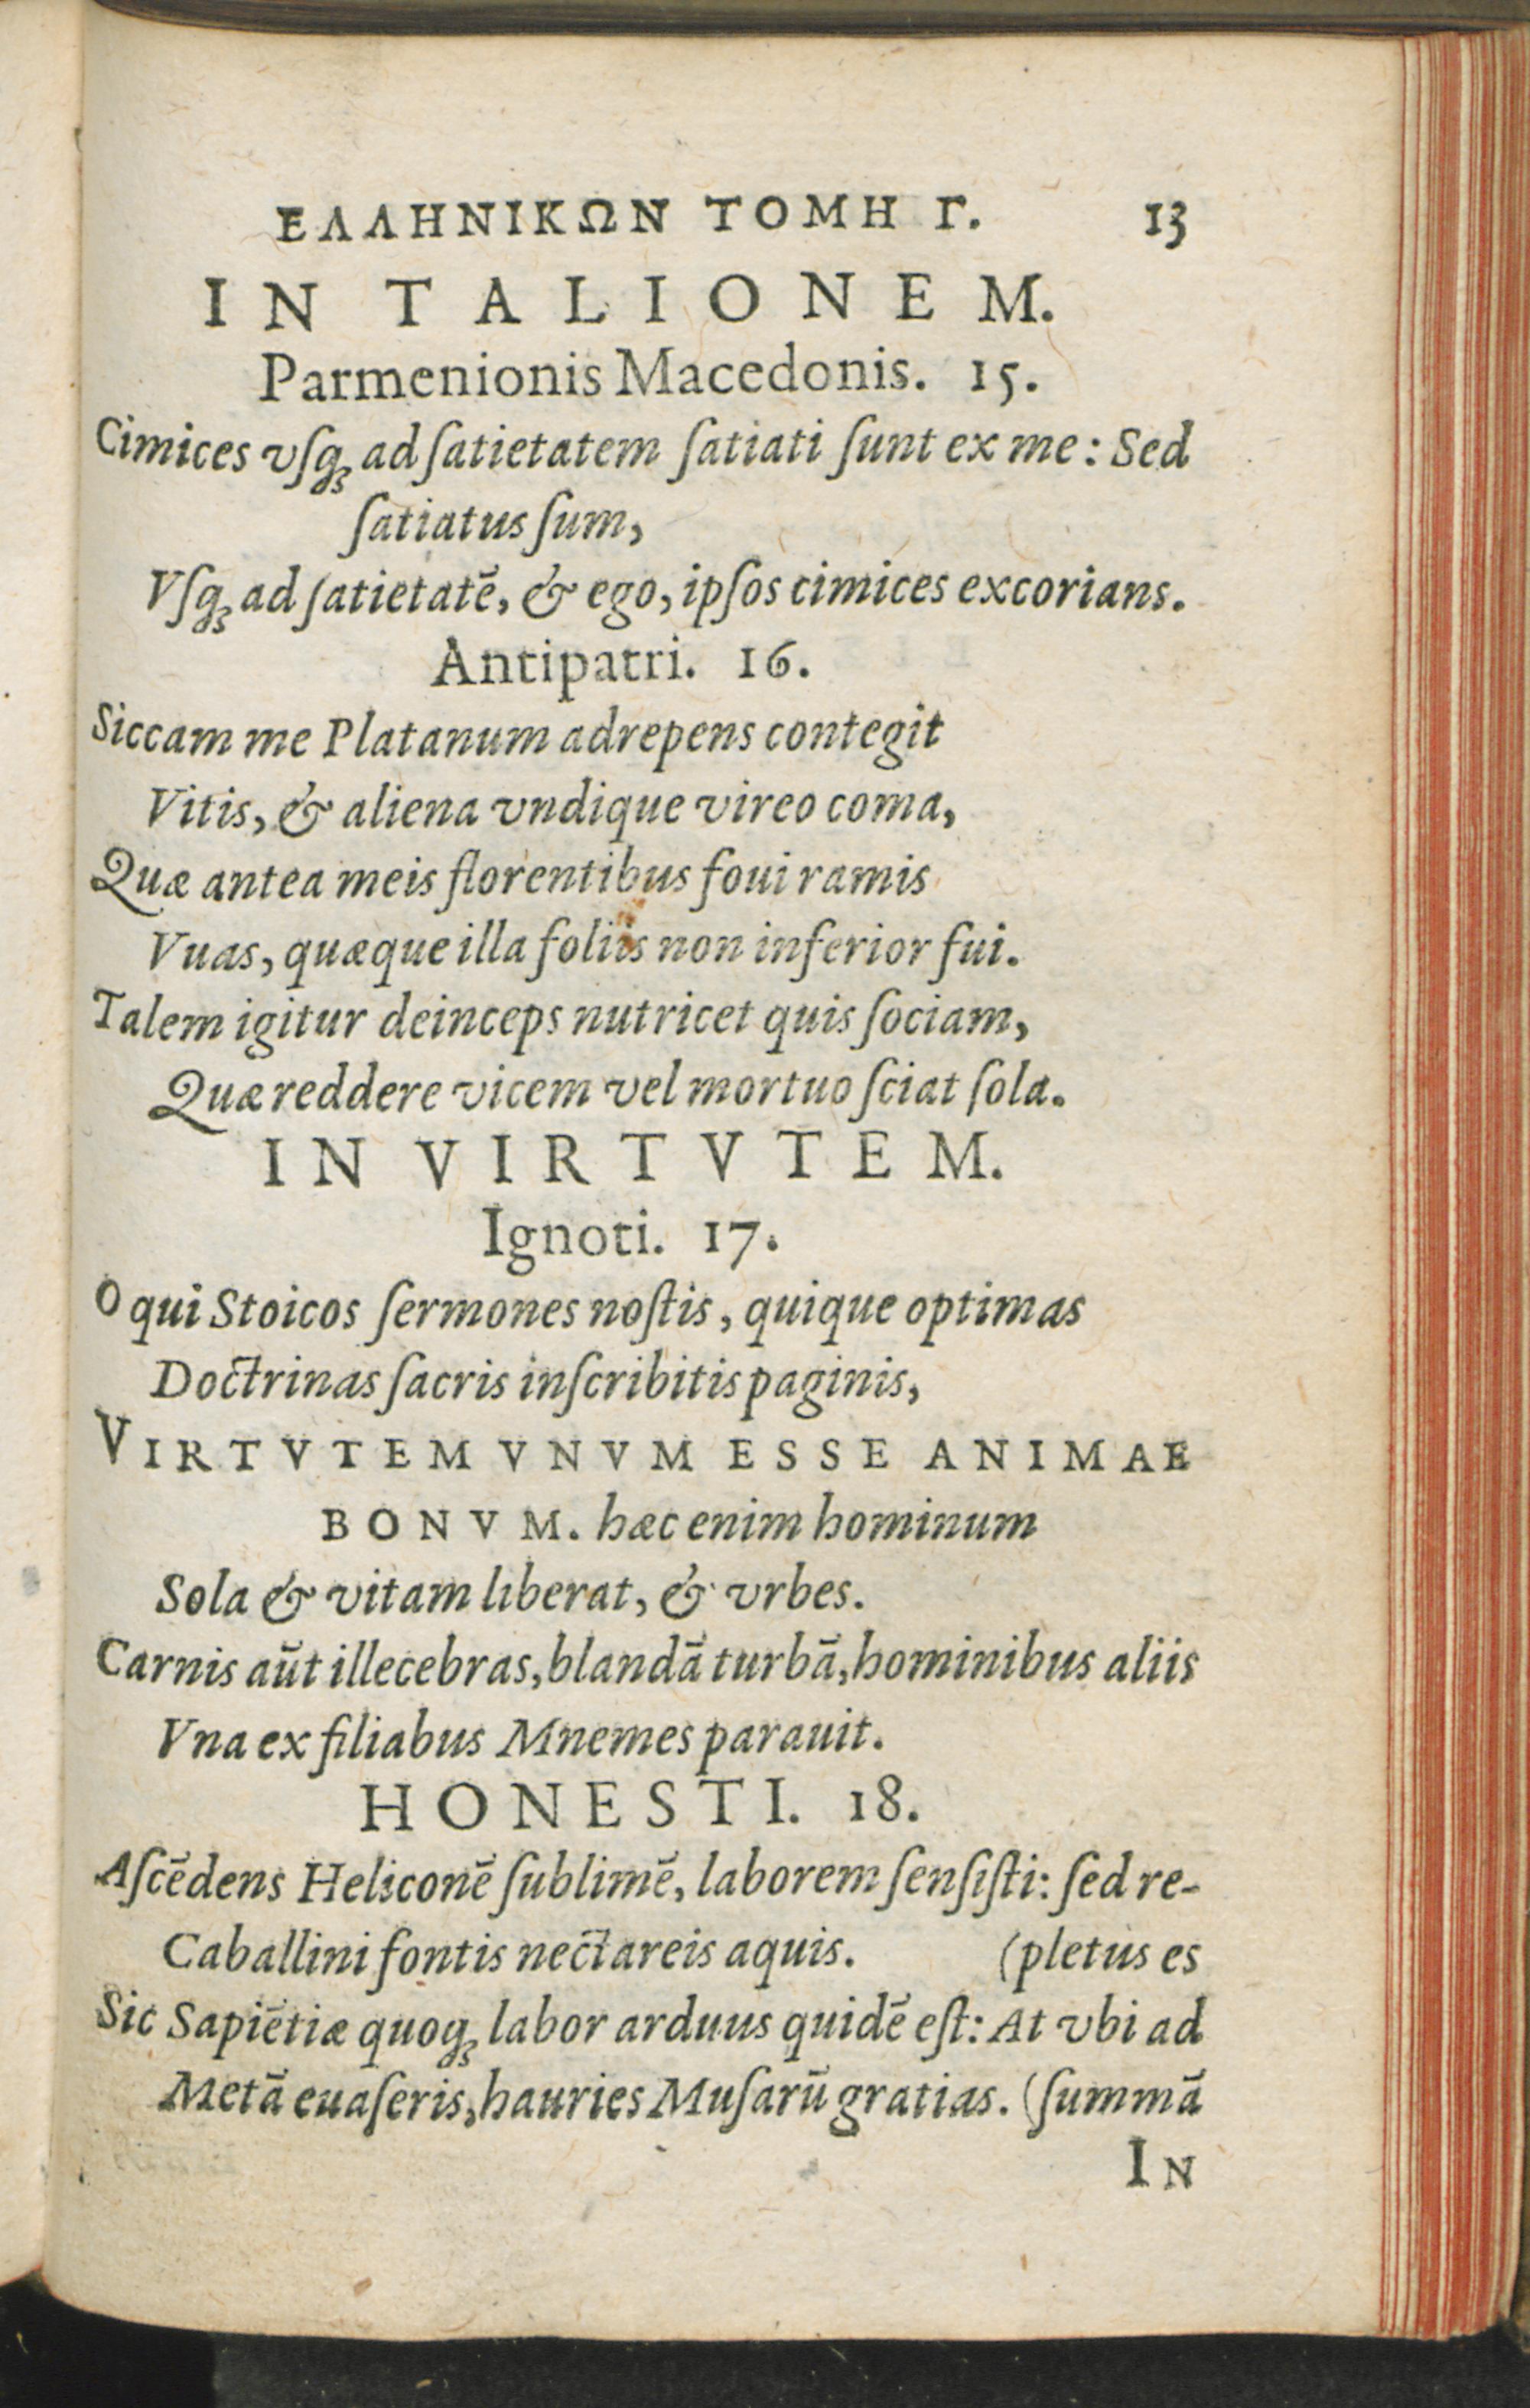 ΕΛΛΗΝΙΚΩΝ ΤΟΜΗ Γ. 13
IN TALIONEM.
Parmenionis Macedonis. 15.
Cimices vſq́ꝫ ad ſatietatem ſatiati ſunt ex me: Sed
ſatiatus ſum,
Vſqꝫ ad ſatietatē, & ego, ipſos cimices excorians.
Antipatri. 16.
Siccam me Platanum adrepens contegit
Vitis, & aliena vndique vireo coma,
Quæ antea meis florentibus foui ramis
Vuas, quæque illa foliis non inferior fui.
Talem igitur deinceps nutricet quis ſociam,
Quæ reddere vicem vel mortuo ſciat ſola.
IN VIRTVTEM.
Ignoti. 17.
O qui Stoicos ſermones noſtis, quique optimas
Doctrinas ſacris inſcribitis paginis,
VIRTVTEM VNVM ESSE ANIMAE
BONVM. hæc enim hominum
Sola & vitam liberat, & vrbes.
Carnis aūt illecebras, blandā turbā, hominibus aliis
Vna ex filiabus Mnemes parauit.
HONESTI. 18.
Aſcēdens Heliconē ſublimē, laborem ſenſiſti: ſed re-
Caballini fontis nectareis aquis. (pletus es
Sic Sapiētiæ quoqꝫ labor arduus quidē eſt: At vbi ad
Metā euaſeris, hauries Muſarū gratias. (ſummā
IN